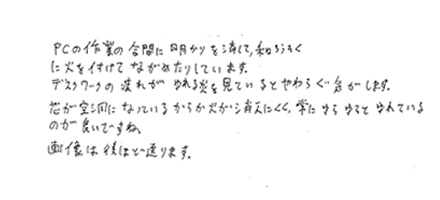 PCの作業の合間に明かりを消して、和ろうそく
に火を付けてながめたりしています。
デスクワークの疲れがゆれる炎を見ているとやわらぐ気がします。
芯が空洞になっているからか火が消えにくく、常にゆらゆらとゆれている
のが良いですね。
画像は後ほど送ります。